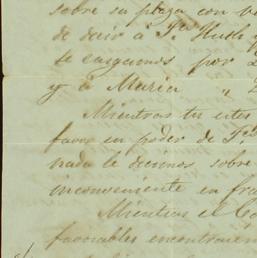 sobre su plaza con
de decir á Sr. Ruth
le cargamos por
y á Maria " 
Mientras tu estes
favor en poder de Sr.
nada le decimos sobre
inconveniente en
Mientras el
favorables